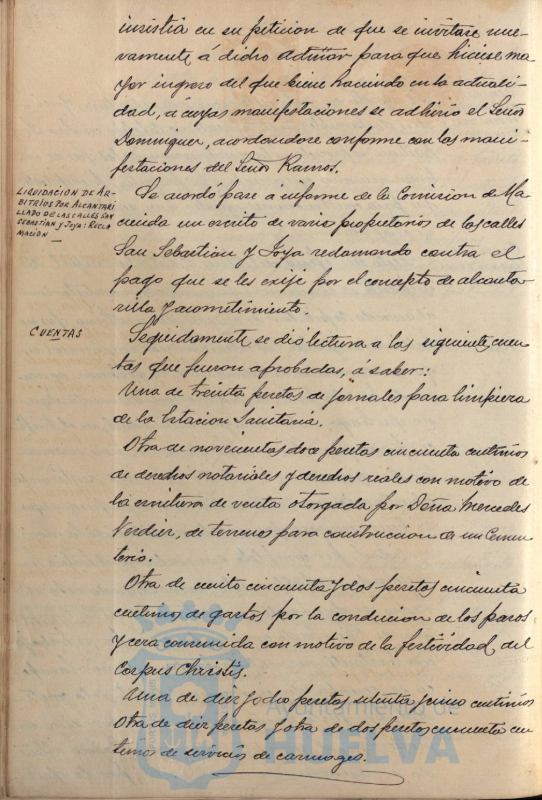 insistía en su peticion de que se invitase nue-
vamente á dicho Admor para que hiciese ma
yor ingreso del que viene haciendo en la actuali-
dad, á cuyas manifestaciones se adhirió el Señor
Dominguez, acordandose conforme con las mani-
festaciones del Señor Ramos.
LIQUIDACION DE AR-
BITRIOS POR ALCANTARI
LLADO DE LAS CALLES SAN
SEBASTIAN Y JOYA: RECLA
MACION
Se acordó pase á informe de la Comision de Ha
cienda un escrito de varios propietarios de las calles
San Sebastian y Joya reclamando contra el
pago que se les exije por el concepto de alcanta-
rilla y acometimiento.
CUENTAS
Seguidamente, se dió lectura a las siguientes cuen
tas que fueron aprobadas, á saber:
Una de treinta pesetas de jornales para limpieza
de la Estacion Sanitaria.
Otra de novecientas doce pesetas cincuenta centimos
de derechos notariales y derechos reales con motivo de
la escritura de venta otorgada por Doña Mercedes
Verdier, de terrenos para construccion de un Cemen
terio.
Otra de ciento cincuenta y dos pesetas cincuenta
centimos de gastos por la conduccion de los pasos
y cera consumida con motivo de la festividad del
Corpus Christis.
Una de diez y ocho pesetas setenta y cinco centimos
Otra de diez pesetas y otra de dos pesetas cincuenta cen
timos de servicio de carruages.
HUELVA